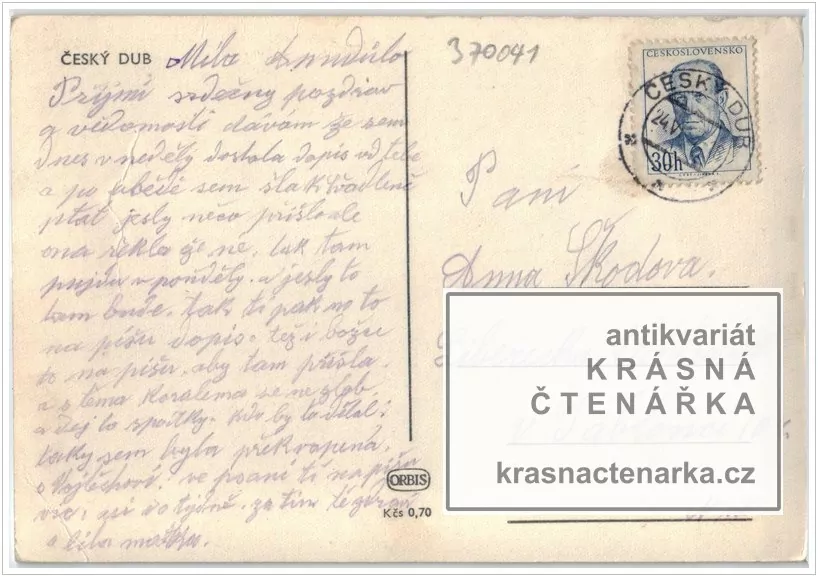 ČESKÝ DUB Milá Andulo
Prijmi srdečny pozdrav
a vědomosti dávam že sem
dnes v neděly dostala dopis od tebe
a po obědě sem šla k švadleně
ptát jesly něco příšlo ale
ona řekla že ne, tak tam
pujdu v ponděly. a jesly to
tam bude, tak ti pak na to
na píšu dopis. též i
to na píšu, aby tam příšla,
a s těma koralema se ne zlob
a dej to spátky. kdo by to dělal.
taky sem byla překvapená,
o Vojtěchovi. ve psaní ti na píšu
vše, až v týdně. za tim tě zdraví
a líbá matka.
ORBIS
Kčs 0,70
370041
ČESKOSLOVENSKO
30h
ČESKÝ DUB
24.V
Paní
Anna Škodova.
antikvariát
KRÁSNÁ
ČTENÁŘKA
krasnactenarka.cz